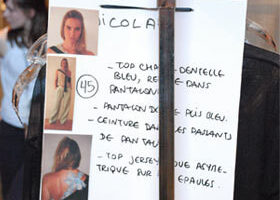 NICOLA
45
- TOP DENTELLE
BLEU, DANS
PANTALON
- PANTALON BLEU.
- CEINTURE DANS LES PASSANTS
DE PANTA
- TOP JERSEY ASYME-
TRIQUE SUR EPAULES.